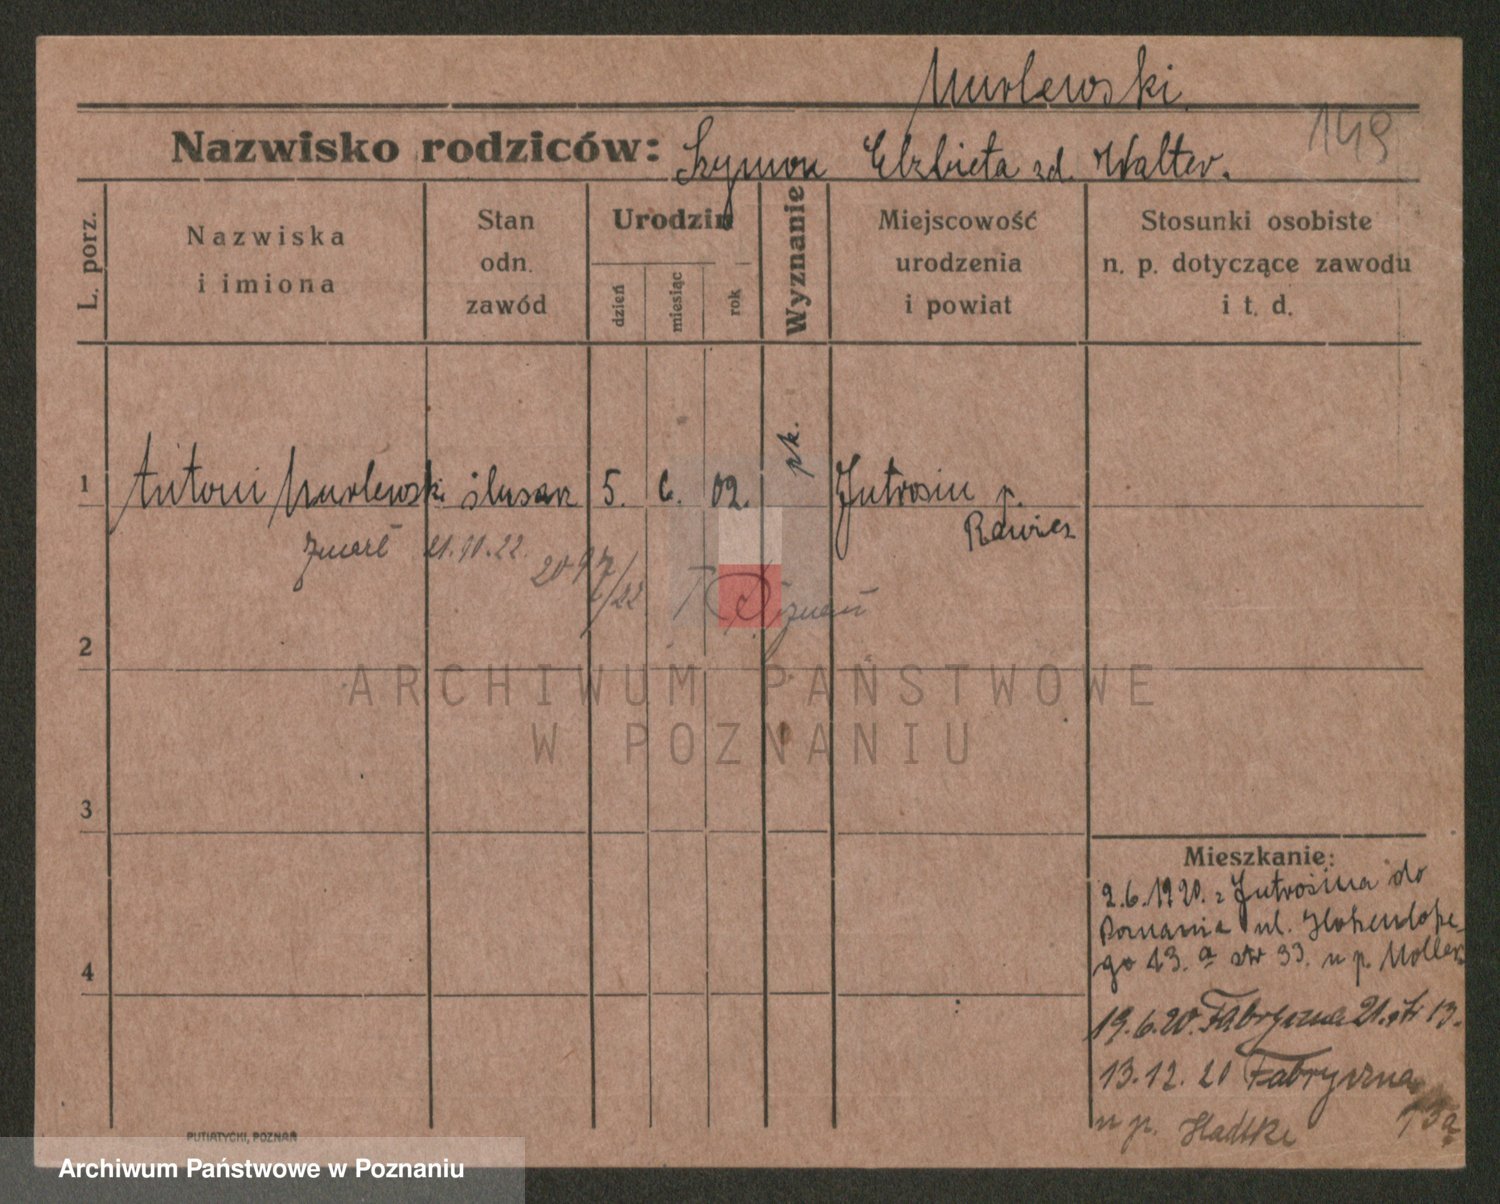 Murlewski
149
Nazwisko rodziców: Szymon Elżbieta zd. Walter.
L. porz.
Nazwiska i imiona
Stan odn. zawód
Urodzin
dzień miesiąc rok
Wyznanie
Miejscowość urodzenia i powiat
Stosunki osobiste n. p. dotyczące zawodu i t. d.
1 Antoni Murlewski ślusarz 5. 6. 02. rk. Jutrosin p.
Rawicz
zmarł 21.10.22.
Poznań
2
3
4
ARCHIWUM PAŃSTWOWE
W POZNANIU
Mieszkanie:
2.6.1920. z Jutrosina do
Poznania ul.
go 13.a str 33. u p. Moller
19.6.20. Fabryczna 21. str 13.
13.12.20 Fabryczna
13a
u p. Hadtke
PUTIATYCKI, POZNAŃ
Archiwum Państwowe w Poznaniu